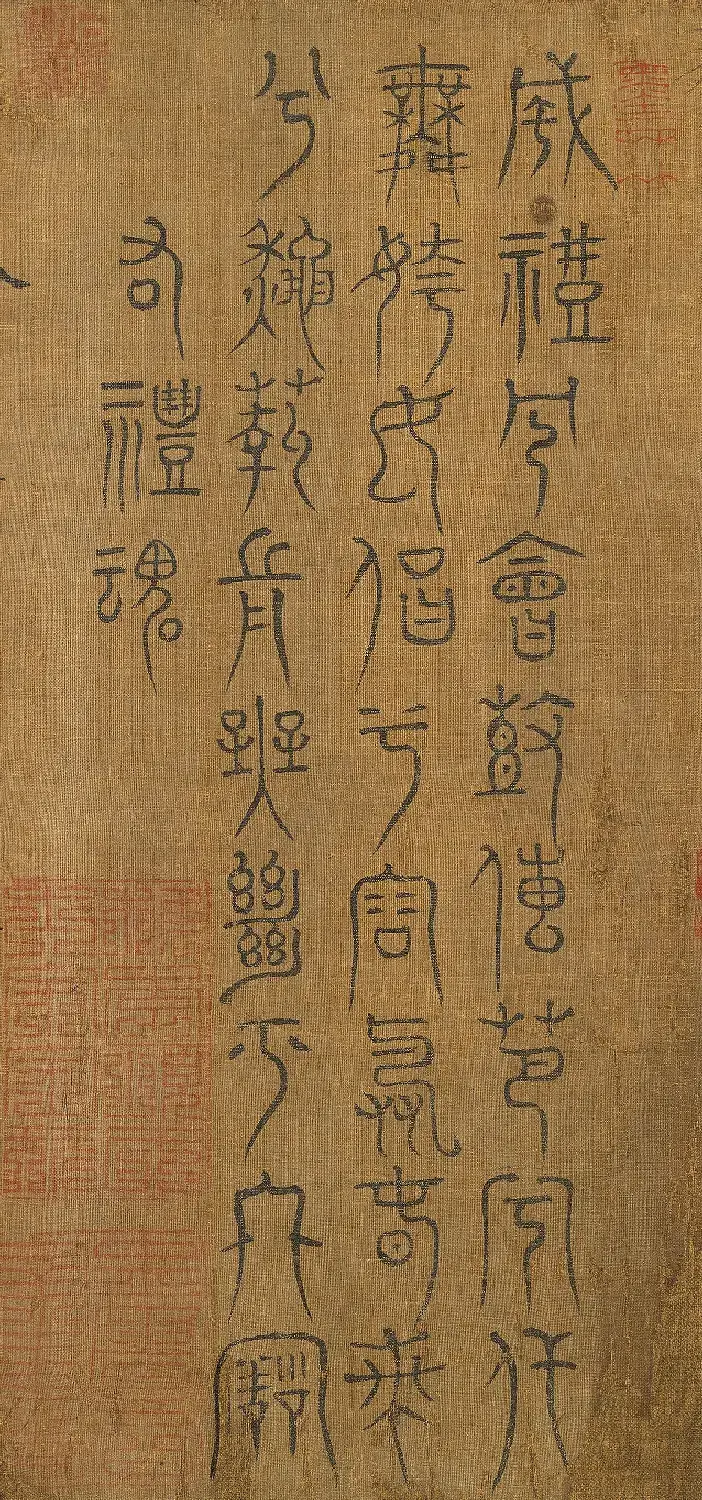 成禮兮會鼓傳芭兮代
舞姱女倡兮容與春蘭
兮秋菊長無絕兮終古
右禮魂